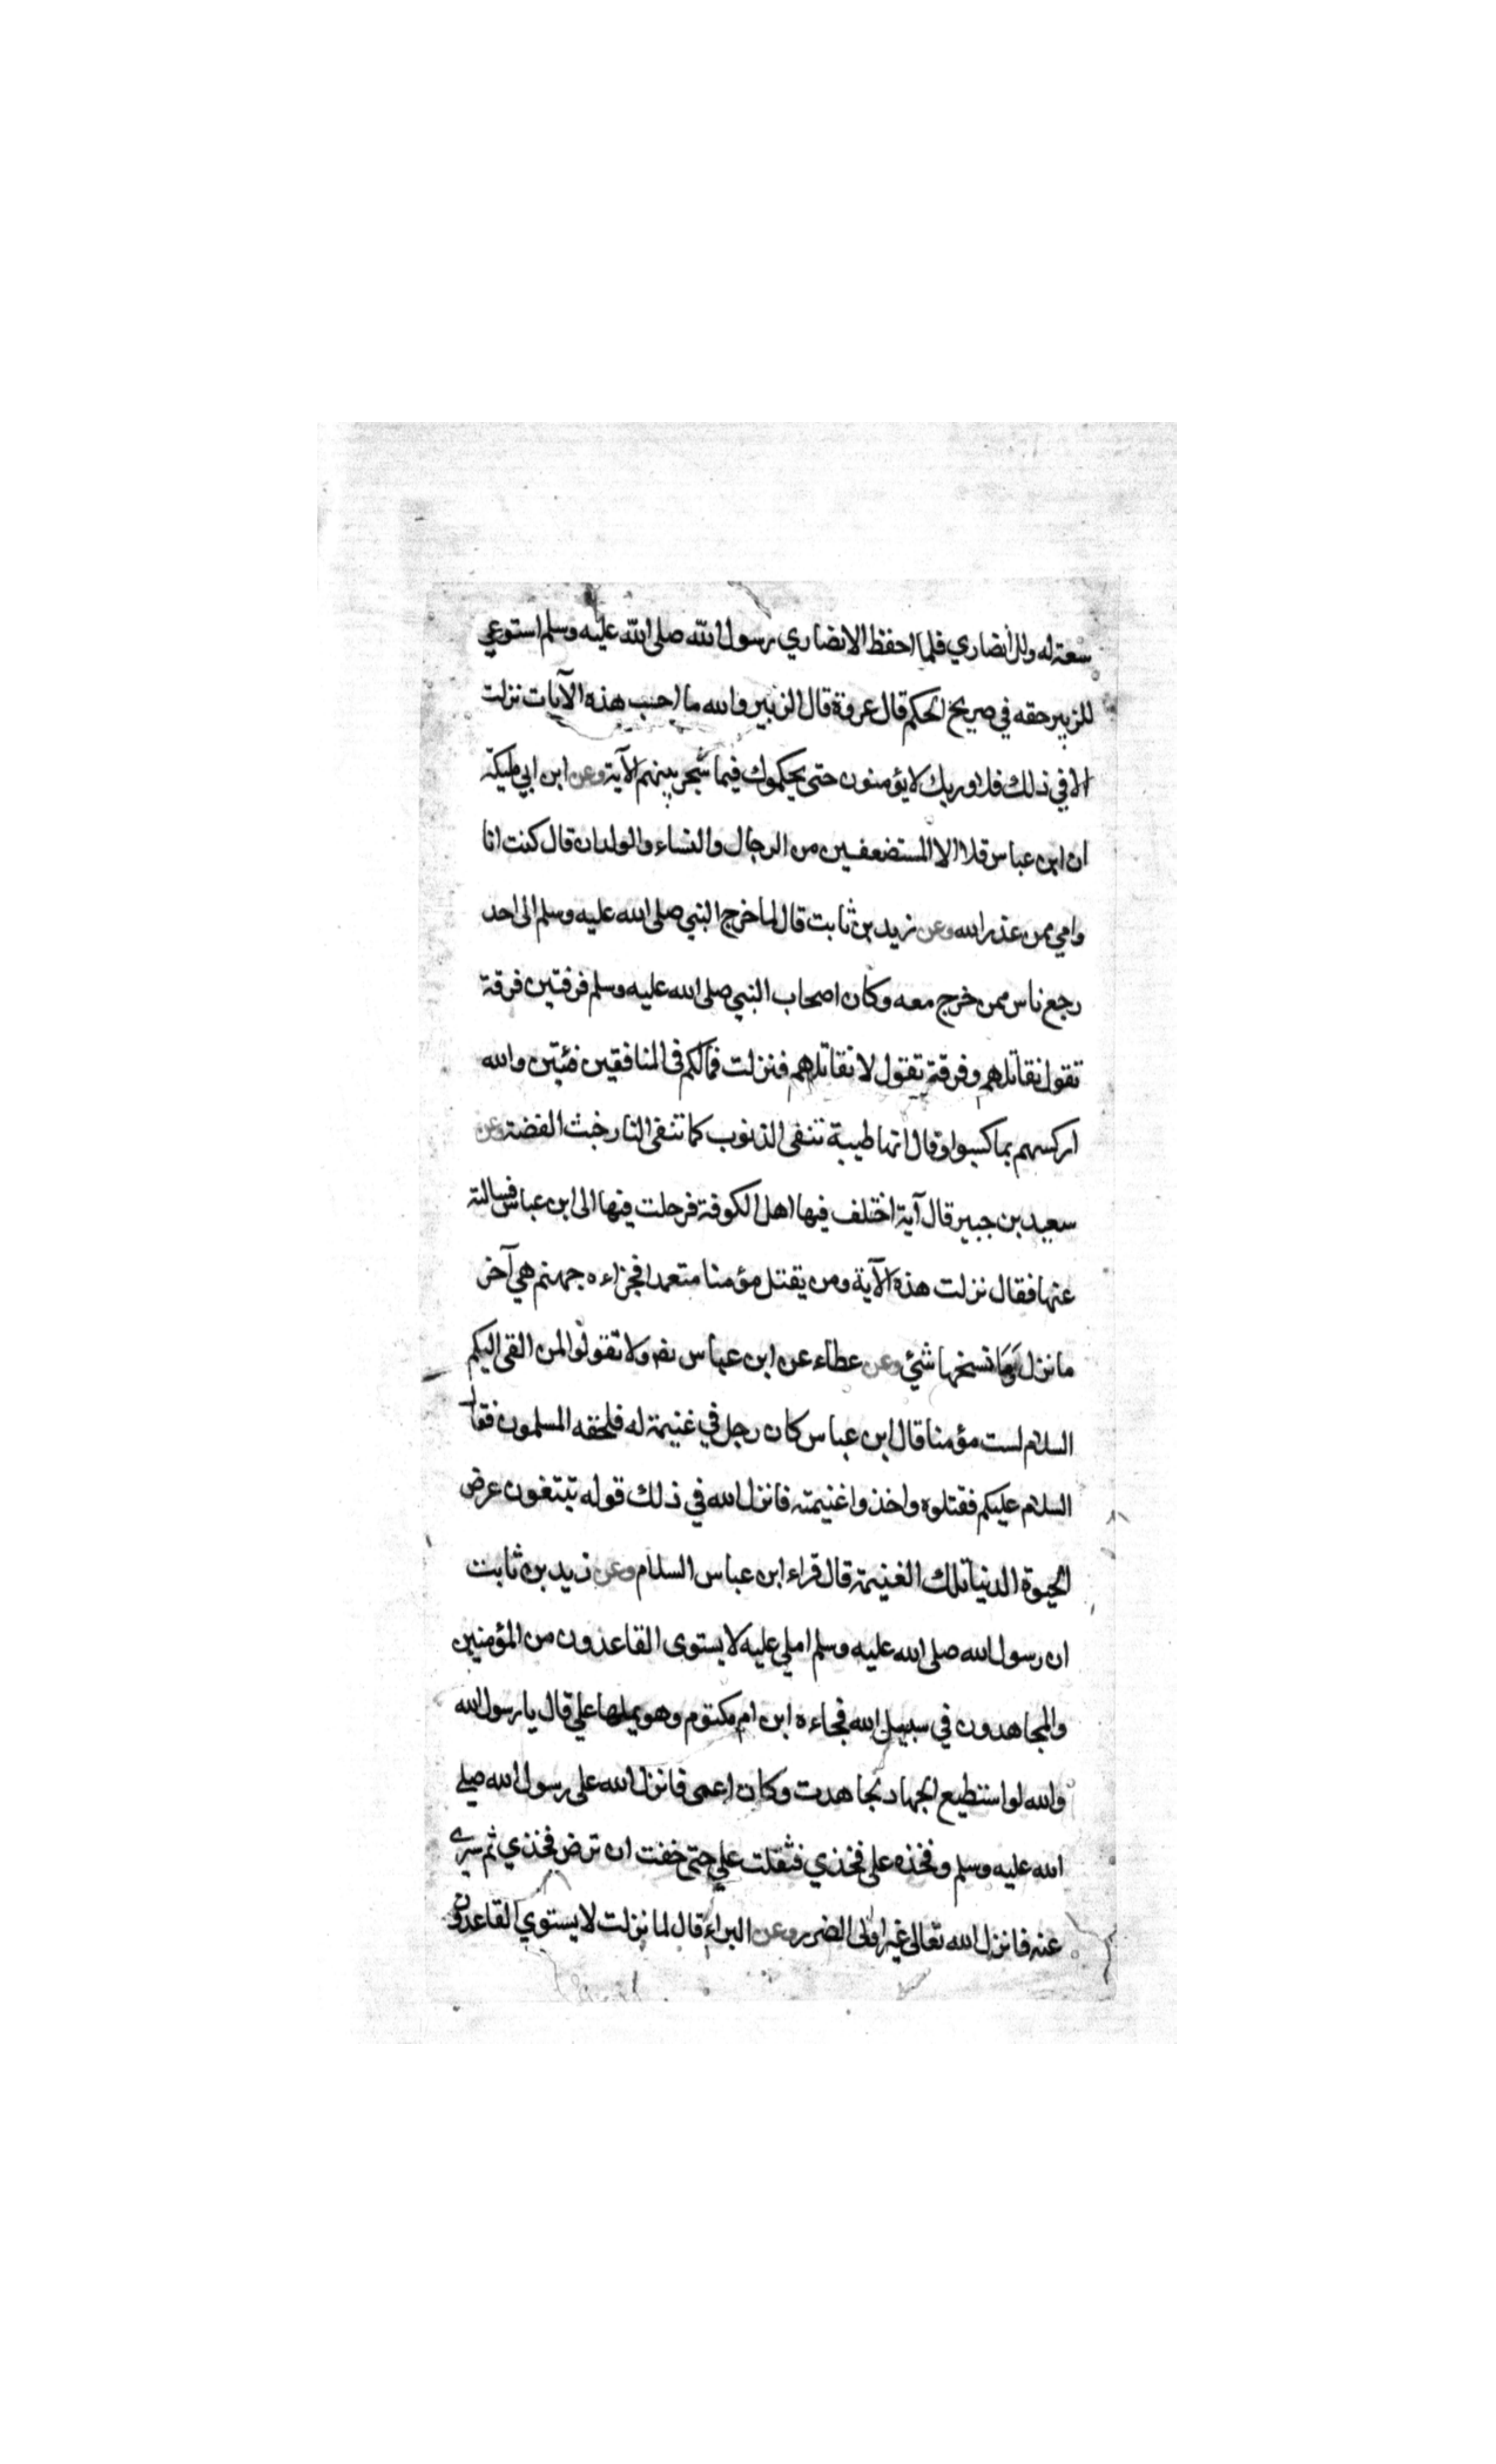 سعة له وللأنصاري فلما احفظ الانصاري رسول الله صلى الله عليه وسلم استوعي
للزبير حقه في صريح الحكم قال عروة قال الزبير والله ما احسب هذه الآيات نزلت
الا في ذلك فلا وربك لا يؤمنون حتى يحكموك فيما شجر بينهم الآية وعن ابن ابي مليكة
ان ابن عباس تلا الا المستضعفين من الرجال والنساء والولدان قال كنت انا
وامي ممن عذر الله وعن زيد بن ثابت قال لما خرج النبي صلى الله عليه وسلم الى احد
رجع ناس ممن خرج معه وكان اصحاب النبي صلى الله عليه وسلم فرقتين فرقة
تقول نقاتلهم وفرقة تقول لا نقاتلهم فنزلت فمالكم فى المنافقين فئتين والله
اركسهم بما كسبوا وقال انها طيبة تنفى الذنوب كما تنفى النار خبث الفضة وعن
سعيد بن جبير قال آية اختلف فيها اهل الكوفة فرحلت فيها الى ابن عباس فسالته
عنها فقال نزلت هذه الآية ومن يقتل مؤمنا متعمدا فجزاءه جهنم هي آخر
ما نزل وما نسخها شئ وعن عطاء عن ابن عباس رضه ولا تقولوا لمن القى اليكم
السلام لست مؤمنا قال ابن عباس كان رجل في غنيمة له فلحقه المسلمون فقال
السلام عليكم فقتلوه واخذوا غنيمته فانزل الله في ذلك قوله تبتغون عرض
الحيوة الدنيا تلك الغنيمة قال قراء ابن عباس السلام وعن زيد بن ثابت
ان رسول الله صلى الله عليه وسلم املي عليه لا يستوى القاعدون من المؤمنين
والمجاهدون في سبيل الله فجاءه ابن ام مكتوم وهو يملها علي قال يا رسول الله
والله لو استطيع الجهاد لجاهدت وكان اعمى فانزل الله على رسول الله صلى
الله عليه وسلم وفخذه على فخذي فثقلت علي حتى خفت ان ترض فخذي ثم سري
عنه فانزل الله تعالى غير اولى الضرر وعن البراء قال لما نزلت لا يستوي القاعدون